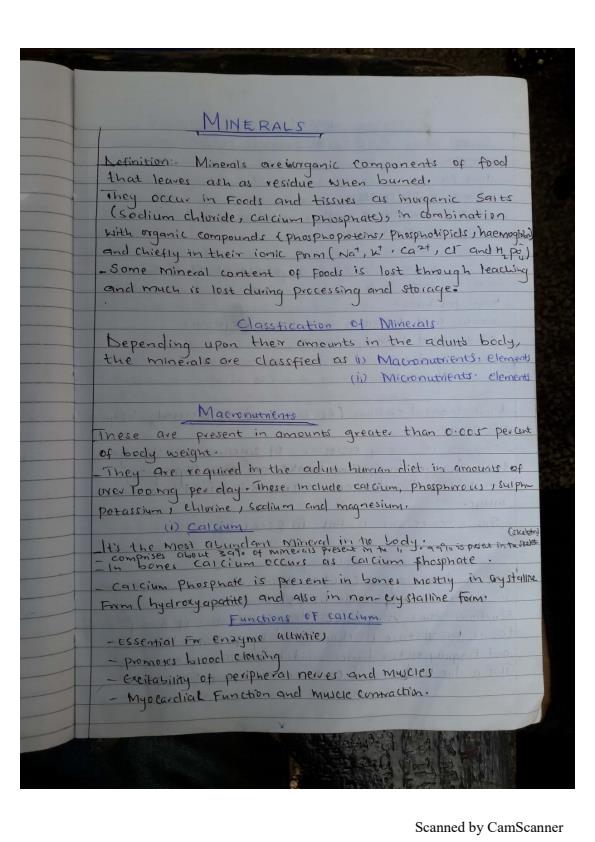 MINERALS
Definition:- Minerals are inorganic components of food
that leaves ash as residue when burned.
They occur in Foods and tissues as inorganic salts
(sodium chloride, calcium phosphate), in combination
with organic compounds (phosphoproteins, phospholipids, haemoglobin)
and chiefly in their ionic form (Na⁺, K⁺, Ca²⁺, Cl⁻ and H₂PO₄)
- Some mineral content of foods is lost through leaching
and much is lost during processing and storage.
Classfication of Minerals
Depending upon their amounts in the adults body,
the minerals are classfied as (i) Macronutrients. elements
(ii) Micronutrients. elements
Macronutrients
These are present in amounts greater than 0.005 percent
of body weight.
- They are required in the adult human diet in amounts of
over 100 mg per day. These include calcium, phosphorous, sulphur
potassium, chlorine, sodium and magnesium.
(i) Calcium
- It's the Most abundant Mineral in the body. (skeleton)
- comprises about 39% of minerals present in the 99% is present in the
- In bones calcium occurs as calcium phosphate.
- Calcium Phosphate is present in bones mostly in crystalline
Form (hydroxyapatite) and also in non-crystalline form.
Functions of calcium
- Essential for enzyme activities
- promotes blood clotting
- Excitability of peripheral nerves and muscles
- Myocardial Function and muscle contraction.
Scanned by CamScanner